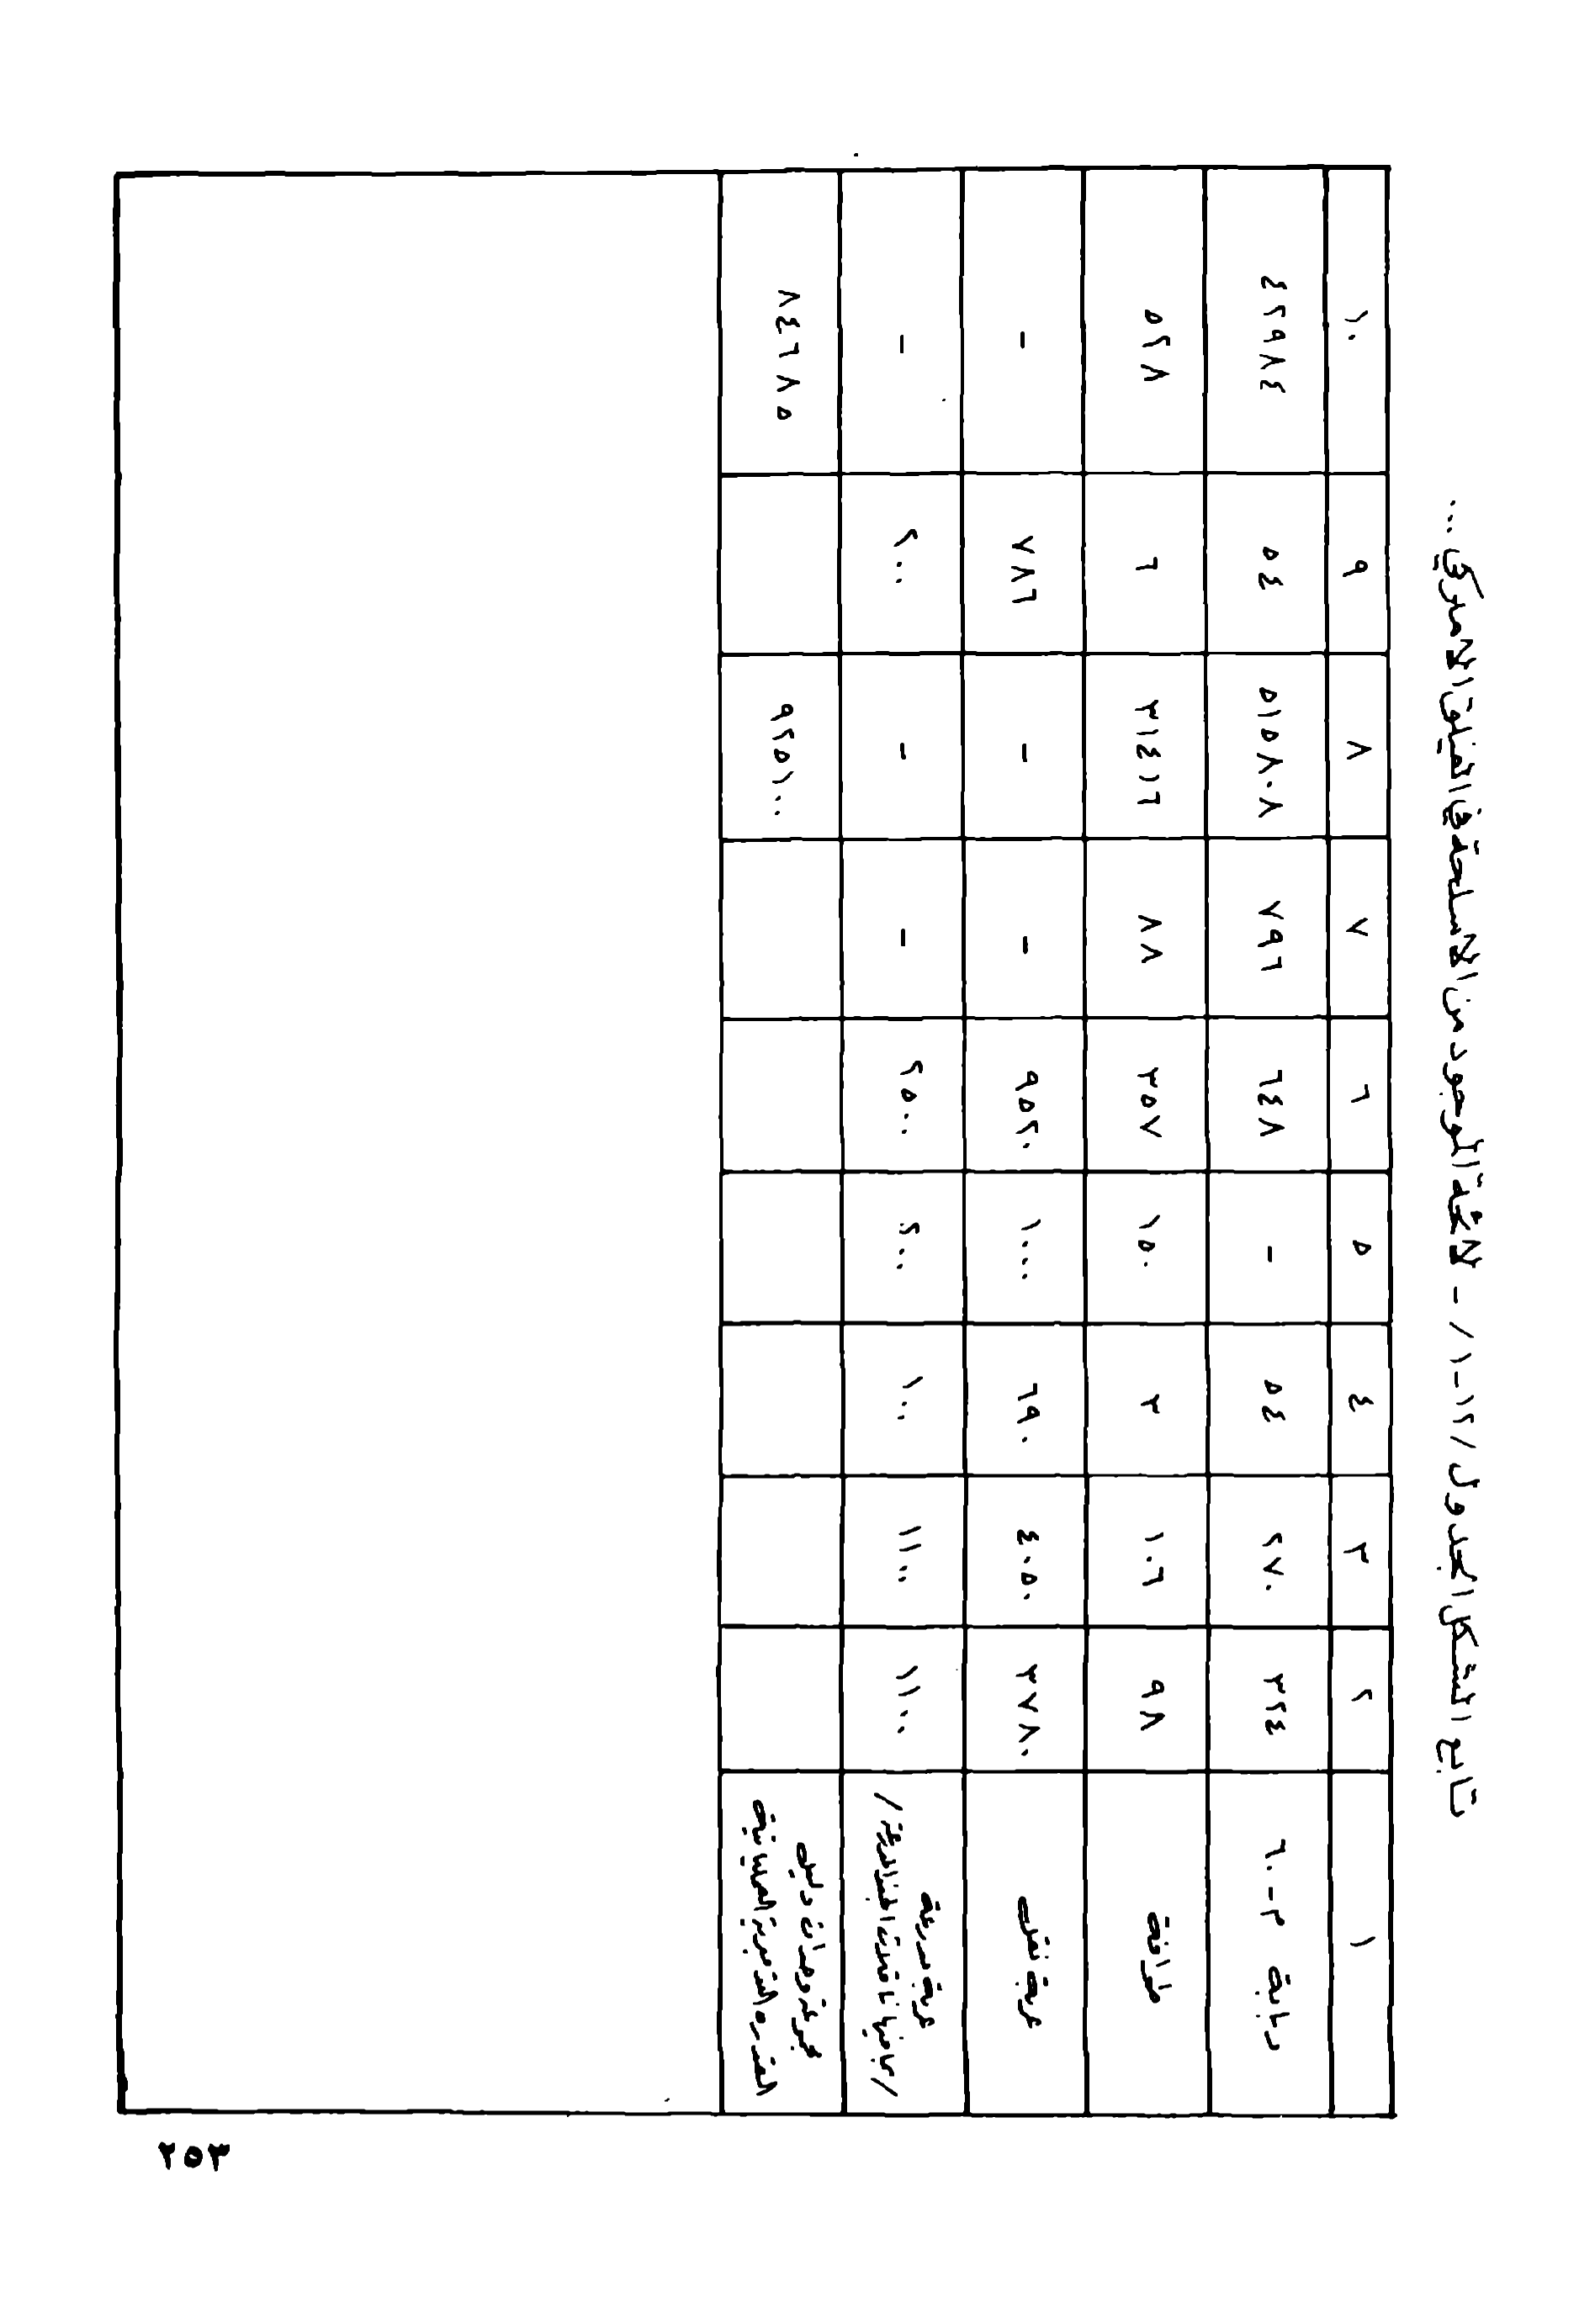 تابع الشكل الجدول /١٢-١/ - لائحة الموجود من الاسلحة في الفيلق الامريكي ...
١ ٢ ٣ ٤ ٥ ٦ ٧ ٨ ٩ ١٠
دبابة م-٦٠ ٣٢٤ ٢٧٠ ٥٤ - ٦٤٨ ٧٩٦ ٥١٥٨٠٨ ٥٤ ٤٢٩٨٤
طوافة ٩٨ ١٠٦ ٣ ١٥٠ ٣٥٧ ٨٨ ٣١٤١٦ ٦ ٥٢٨
عربة نقل ٣٧٨٠ ٤٠٥٠ ٦٩٠ ١٠٠٠ ٩٥٢٠ - - ٧٨٦ -
عربة مدرعة
/بما فيها ناقلات الجند المدرعة/ ١١٠٠ ١١٠٠ ١٠٠ ٢٠٠ ٢٥٠٠ - - ٢٠٠ -
مجموعة وحدات دليل
القدرة التدميرية العملياتية ٩٢٥١٠٠ ٨٤٦٨٥
٢٥٣